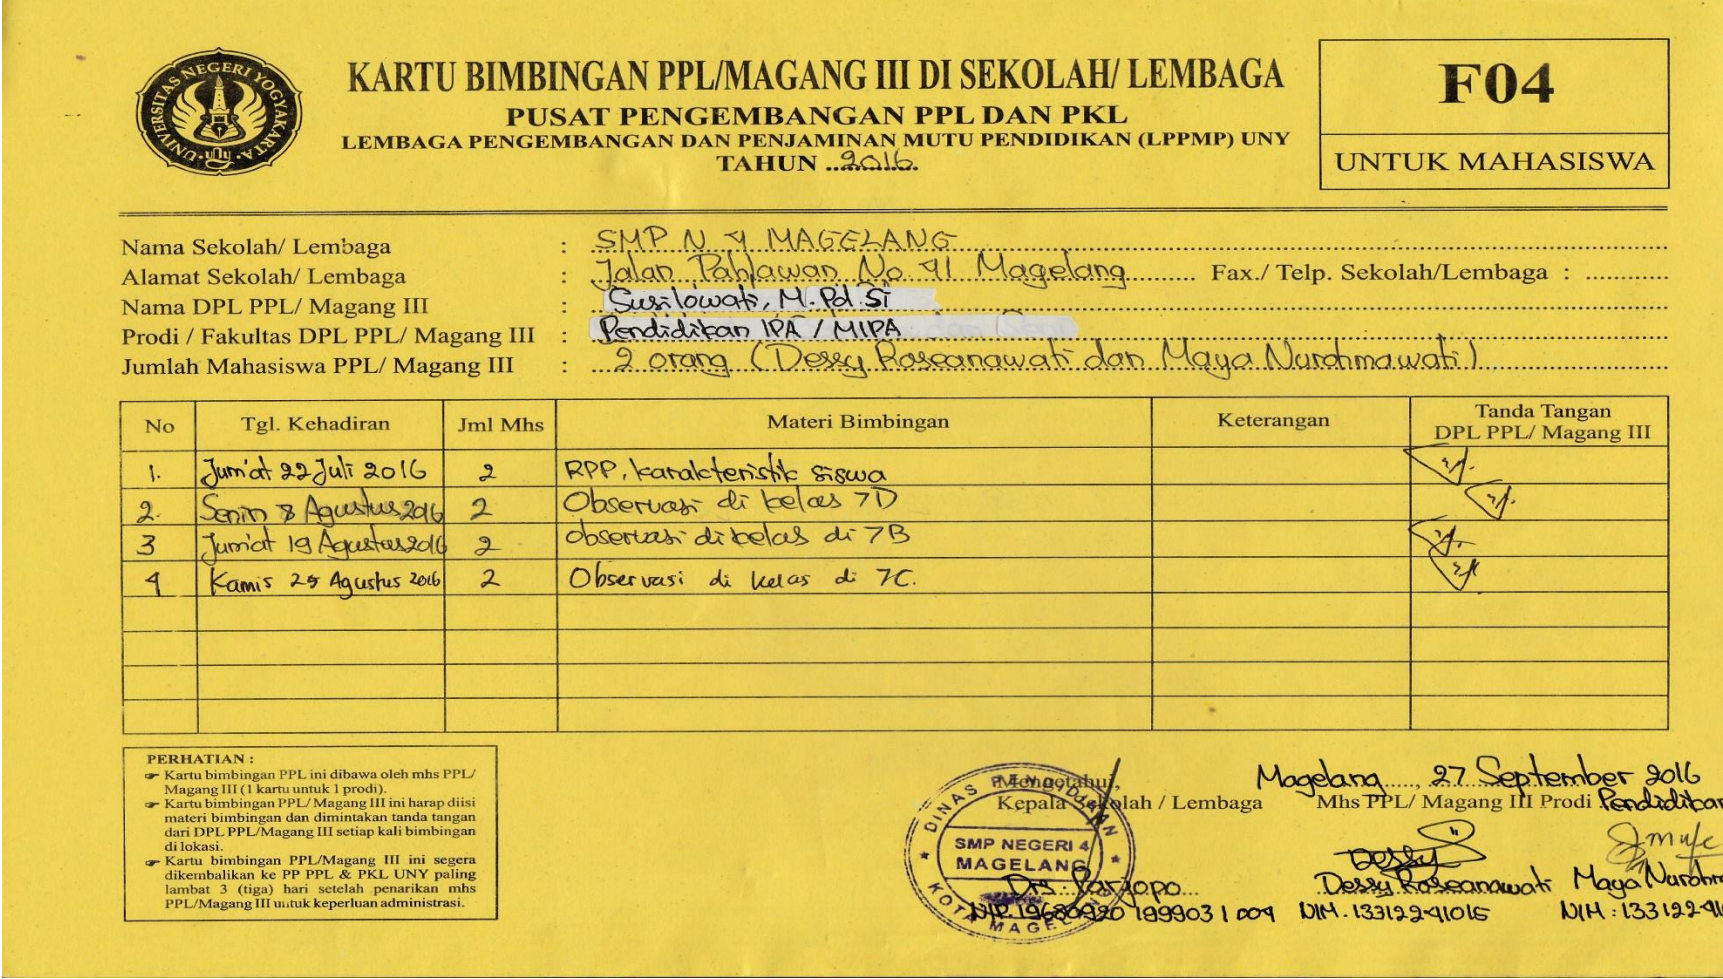 UNIVERSITAS NEGERI YOGYAKARTA
UNY
KARTU BIMBINGAN PPL/MAGANG III DI SEKOLAH/ LEMBAGA
PUSAT PENGEMBANGAN PPL DAN PKL
LEMBAGA PENGEMBANGAN DAN PENJAMINAN MUTU PENDIDIKAN (LPPMP) UNY
TAHUN 2016
F04
UNTUK MAHASISWA
Nama Sekolah/ Lembaga : SMP N 4 MAGELANG
Alamat Sekolah/ Lembaga : Jalan Pahlawan No 41 Magelang Fax./ Telp. Sekolah/Lembaga :
Nama DPL PPL/ Magang III : Susilowati, M.Pd.Si
Prodi / Fakultas DPL PPL/ Magang III : Pendidikan IPA / MIPA
Jumlah Mahasiswa PPL/ Magang III : 2 orang (Dessy Roseanawati dan Maya Nurohmawati)
No Tgl. Kehadiran Jml Mhs Materi Bimbingan Keterangan Tanda Tangan DPL PPL/ Magang III
1. Jum'at 22 Juli 2016 2 RPP, karakteristik siswa
2. Senin 8 Agustus 2016 2 Observasi di kelas 7D
3 Jum'at 19 Agustus 2016 2 observasi di kelas di 7B
4 Kamis 25 Agustus 2016 2 Observasi di kelas di 7C.
PERHATIAN :
☞ Kartu bimbingan PPL ini dibawa oleh mhs PPL/
Magang III (1 kartu untuk 1 prodi).
☞ Kartu bimbingan PPL/ Magang III ini harap diisi
materi bimbingan dan dimintakan tanda tangan
dari DPL PPL/Magang III setiap kali bimbingan
di lokasi.
☞ Kartu bimbingan PPL/Magang III ini segera
dikembalikan ke PP PPL & PKL UNY paling
lambat 3 (tiga) hari setelah penarikan mhs
PPL/Magang III untuk keperluan administrasi.
Mengetahui,
Kepala Sekolah / Lembaga
DINAS PENDIDIKAN
SMP NEGERI 4
MAGELANG
KOTA MAGELANG
Drs. Pargopo
NIP. 19680920 199903 1 004
Magelang, 27 September 2016
Mhs PPL/ Magang III Prodi Pendidikan
Dessy
Dessy Roseanawati Maya Nurohm
NIM. 13312241015 NIM : 13312241